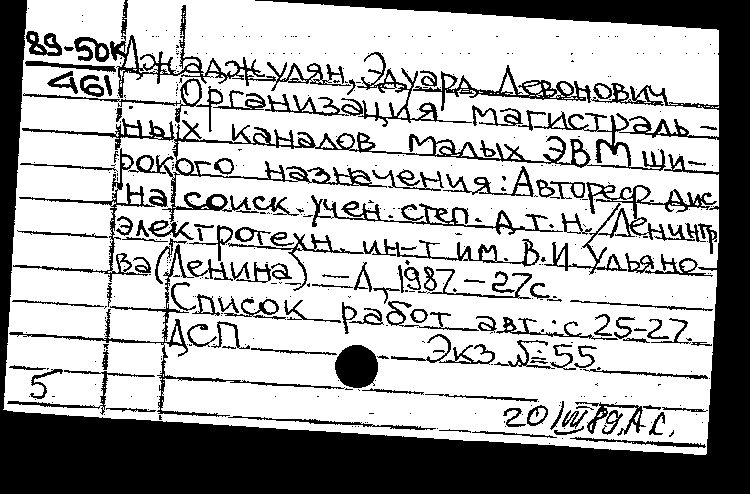 89-50к Джаджулян, Эдуард Левонович
461 Организация магистраль-
ных каналов малых ЭВМ ши-
рокого назначения: Автореф. дис
на соиск. учен. степ. д.т.н. /Ленингр
электротехн. ин-т им. В.И. Ульяно-
ва (Ленина). — Л., 1987. — 27с.
Список работ авт.: с. 25-27.
ДСП. Экз. № 55.
5.
20/VII 89, А.С.